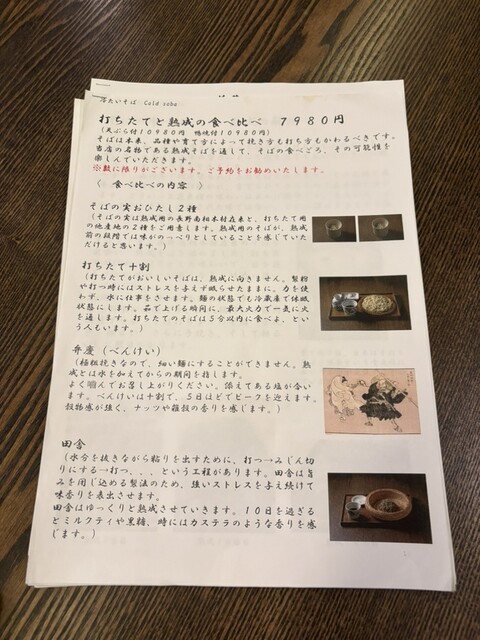 冷たいそば Cold soba
打ちたてと熟成の食べ比べ 7980円
(天ぷら付10980円 鴨焼付10980円)
そばは本来、品種や育て方によって挽き方も打ち方もかわるべきです。
当店の名物である熟成そばを通して、そばの食べごろ、その可能性を
楽しんでいただきます。
※数に限りがございます。ご予約をお勧めいたします。
〈 食べ比べの内容 〉
そばの実おひたし2種
(そばの実は熟成用の長野南相木村在来と、打ちたて用
の他産地の2種をご用意します。熟成用のそばが、熟成
前の段階では味がのっぺりとしていることを感じていた
だけると思います。)
打ちたて十割
(打ちたてがおいしいそばは、熟成に向きません。製粉
や打つ時にはストレスを与えず眠らせたままに。力を使
わず、水に仕事をさせます。麺の状態でも冷蔵庫で休眠
状態にします。茹で上げる瞬間に、最大火力で一気に火
を通します。打ちたてのそばは5分以内に食べよ、とい
う人もいます。)
弁慶(べんけい)
(極粗挽きなので、細い麺にすることができません。熟
成とは水を加えてからの期間を指します。
よく噛んでお召し上がりください。添えてある塩が合い
ます。べんけいは十割で、5日ほどでピークを迎えます。
穀物感が強く、ナッツや雑穀の香りを感じます。)
田舎
(水分を抜きながら粘りを出すために、打つ→みじん切
りにする→打つ、、、という工程があります。田舎は旨
みを閉じ込める製法のため、強いストレスを与え続けて
味香りを表出させます。
田舎はゆっくりと熟成させていきます。10日を過ぎる
とミルクティや黒糖、時にはカステラのような香りを感
じます。)